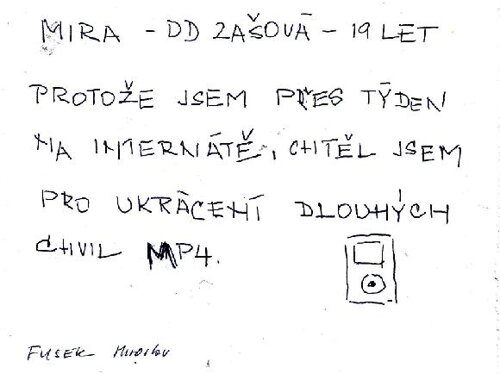 MIRA - DD ZAŠOVÁ - 19 LET
PROTOŽE JSEM PŘES TÝDEN
NA INTERNÁTĚ, CHTĚL JSEM
PRO UKRÁCENÍ DLOUHÝCH
CHVIL MP4.
FUSEK Miroslav